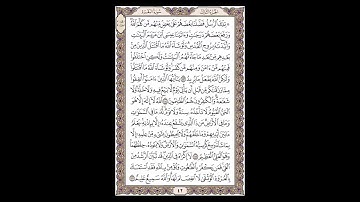 الجزء الثالث سورة البقرة
۞ تِلْكَ الرُّسُلُ فَضَّلْنَا بَعْضَهُمْ عَلَىٰ بَعْضٍ مِّنْهُم مَّن كَلَّمَ اللَّهُ
وَرَفَعَ بَعْضَهُمْ دَرَجَاتٍ وَءَاتَيْنَا عِيسَى ابْنَ مَرْيَمَ الْبَيِّنَاتِ
وَأَيَّدْنَاهُ بِرُوحِ الْقُدُسِ وَلَوْ شَاءَ اللَّهُ مَا اقْتَتَلَ الَّذِينَ مِن
بَعْدِهِم مِّن بَعْدِ مَا جَاءَتْهُمُ الْبَيِّنَاتُ وَلَٰكِنِ اخْتَلَفُوا
فَمِنْهُم مَّنْ ءَامَنَ وَمِنْهُم مَّن كَفَرَ وَلَوْ شَاءَ اللَّهُ مَا اقْتَتَلُوا
وَلَٰكِنَّ اللَّهَ يَفْعَلُ مَا يُرِيدُ ٢٥٣ يَٰأَيُّهَا الَّذِينَ ءَامَنُوا أَنفِقُوا
مِمَّا رَزَقْنَاكُم مِّن قَبْلِ أَن يَأْتِيَ يَوْمٌ لَّا بَيْعٌ فِيهِ وَلَا خُلَّةٌ وَلَا
شَفَاعَةٌ وَالْكَافِرُونَ هُمُ الظَّالِمُونَ ٢٥٤ اللَّهُ لَا إِلَٰهَ إِلَّا هُوَ
الْحَيُّ الْقَيُّومُ لَا تَأْخُذُهُ سِنَةٌ وَلَا نَوْمٌ لَّهُ مَا فِي السَّمَاوَاتِ
وَمَا فِي الْأَرْضِ مَن ذَا الَّذِي يَشْفَعُ عِندَهُ إِلَّا بِإِذْنِهِ يَعْلَمُ
مَا بَيْنَ أَيْدِيهِمْ وَمَا خَلْفَهُمْ وَلَا يُحِيطُونَ بِشَيْءٍ مِّنْ عِلْمِهِ إِلَّا
بِمَا شَاءَ وَسِعَ كُرْسِيُّهُ السَّمَاوَاتِ وَالْأَرْضَ وَلَا يَئُودُهُ حِفْظُهُمَا
وَهُوَ الْعَلِيُّ الْعَظِيمُ ٢٥٥ لَا إِكْرَاهَ فِي الدِّينِ قَد تَّبَيَّنَ الرُّشْدُ مِنَ
الْغَيِّ فَمَن يَكْفُرْ بِالطَّاغُوتِ وَيُؤْمِن بِاللَّهِ فَقَدِ اسْتَمْسَكَ
بِالْعُرْوَةِ الْوُثْقَىٰ لَا انفِصَامَ لَهَا وَاللَّهُ سَمِيعٌ عَلِيمٌ ٢٥٦
٤٢